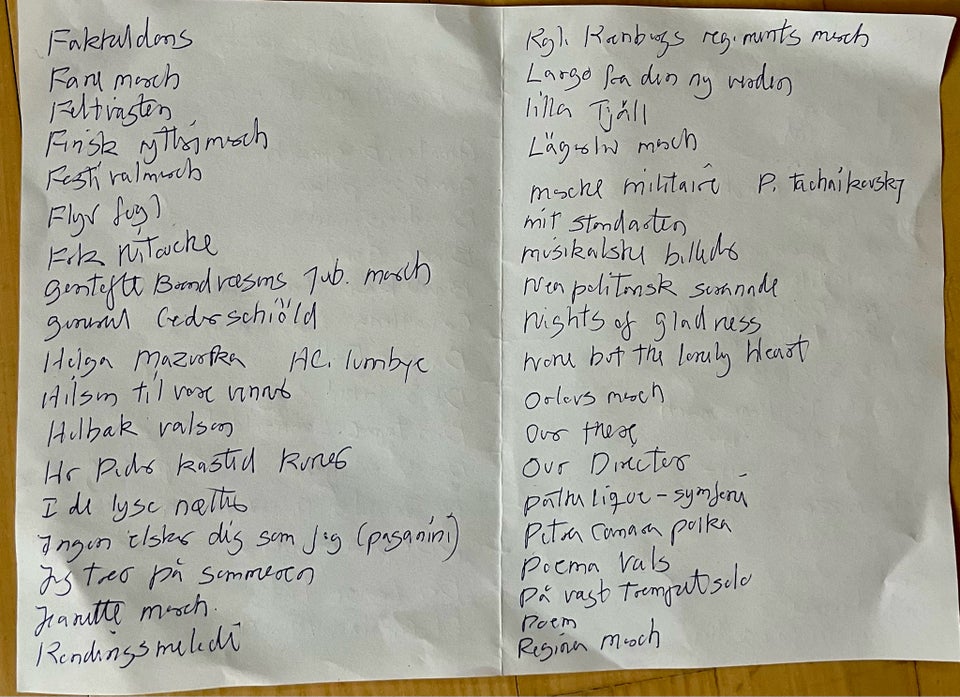 Fakkeldans
Fane march
Feltvagten
Finsk rytterimarch
Festivalmarch
Flyv fugl
Frk Nitouche
Gentofte Brandvæsens Jub. march
General Cederschiöld
Helga Mazurka H.C. Lumbye
Hilsen til vore venner
Holbæk valsen
Hr Peder kasted runer
I de lyse nætter
Ingen elsker dig som jeg (paganini)
Jeg tror på sommeren
Jeanette march.
Kendingsmelodi
Kgl. Kronborgs regiments march
Largo fra den ny verden
lilla Tjäll
Lägerliv march
Marche militaire P. Tschaikovsky
mit standarten
musikalske billeder
Neapolitansk serenade
Nights of gladness
None but the lonely Heart
Orlovs march
Over there
Our Director
pathetique - symfoni
Petra Camara polka
Poema Vals
På vagt Trompetsolo
Poem
Regina march